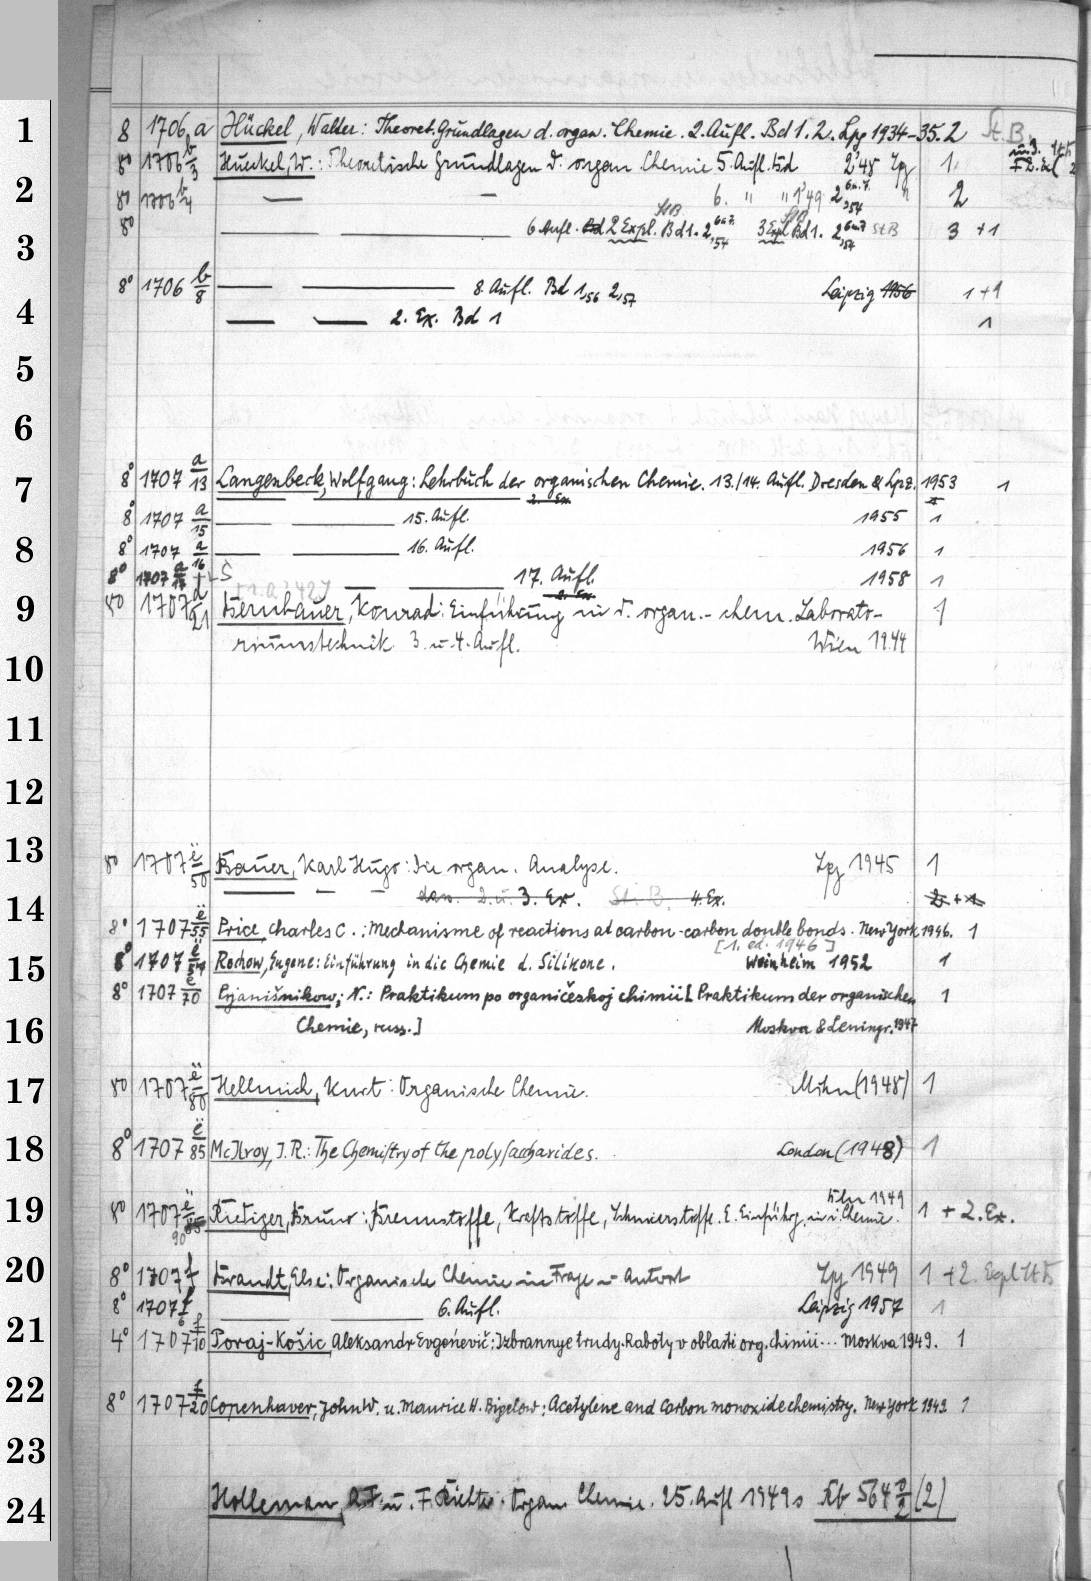 1 8 1706,a Hückel, Walter: Theoret. Grundlagen d. organ. Chemie. 2. Aufl. Bd 1. 2. Lpg 1934-35. 2 St.B.
8° 1706 b/3 Hückel, W.: Theoretische Grundlagen d. organ. Chemie 5. Aufl. Bd 2 '48 Lpz 1
2 8° 1706 b/4 — — 6. " " 1'49 2,54 6.u.7. " 2
3 8° — — 6 Aufl. 2 Expl. StB Bd 1. 2,54 6u7. 3 Expl StB Bd 1. 2,54 6u7 StB 3 + 1
8° 1706 b/8 — — 8. Aufl. Bd 1,56 2,57 Leipzig 1956 1 + 1
4 — — 2. Ex. Bd 1 1
5
6
7 8° 1707 a/13 Langenbeck, Wolfgang: Lehrbuch der organischen Chemie. 13./14. Aufl. Dresden & Lpz. 1953 1
2. Ex.
8° 1707 a/15 — — 15. Aufl. 1955 1
8 8° 1707 a/16 — — 16. Aufl. 1956 1
8° 1707 a/17 — — 17. Aufl. 1958 1
9 8° 1707 a/21 Bernhauer, Konrad: Einführung in d. organ.-chem. Laborato-
riumstechnik. 3. u. 4. Aufl. Wien 1944 1
10
11
12
13 8° 1707 ë/50 Bauer, Karl Hugo: Die organ. Analyse. Lpz 1945 1
14 — — — dass. 2. u. 3. Ex. St. B. 4. Ex. 2 + 1
8° 1707 ë/55 Price, Charles C.: Mechanisme of reactions at carbon-carbon double bonds. New York 1946. 1
[1. ed. 1946]
15 8° 1707 ë/57 Rochow, Eugene: Einführung in die Chemie d. Silikone. Weinheim 1952 1
8° 1707 ë/70 Prjanišnikow, N.: Praktikum po organičeskoj chimii [Praktikum der organischen 1
16 Chemie, russ.] Moskva & Leningr. 1947
17 8° 1707 ë/80 Hellmich, Kurt: Organische Chemie. Mchn (1948) 1
18 8° 1707 ë/85 McIlroy, J. R.: The Chemistry of the polysaccharides. London (1948) 1
19 8° 1707 ë/90 Riediger, Bruno: Brennstoffe, Kraftstoffe, Schmierstoffe. E. Einführg. in i. Chemie. Köln 1949 1 + 2. Ex.
20 8° 1707 f Brandt, Else: Organische Chemie in Frage u. Antwort Lpz 1949 1 + 2. Expl StB
8° 1707 f/6 — — 6. Aufl. Leipzig 1957 1
21 4° 1707 f/10 Poraj-Košic, Aleksandr Evgen'evič: Izbrannye trudy. Raboty v oblasti org. chimii... Moskva 1949. 1
22 8° 1707 f/20 Copenhaver, John W. u. Maurice H. Bigelow: Acetylene and Carbon monoxide chemistry. New York 1949. 1
23
24 Holleman, A. F. u. F. Richter: Organ. Chemie. 25. Aufl 1949 (2)